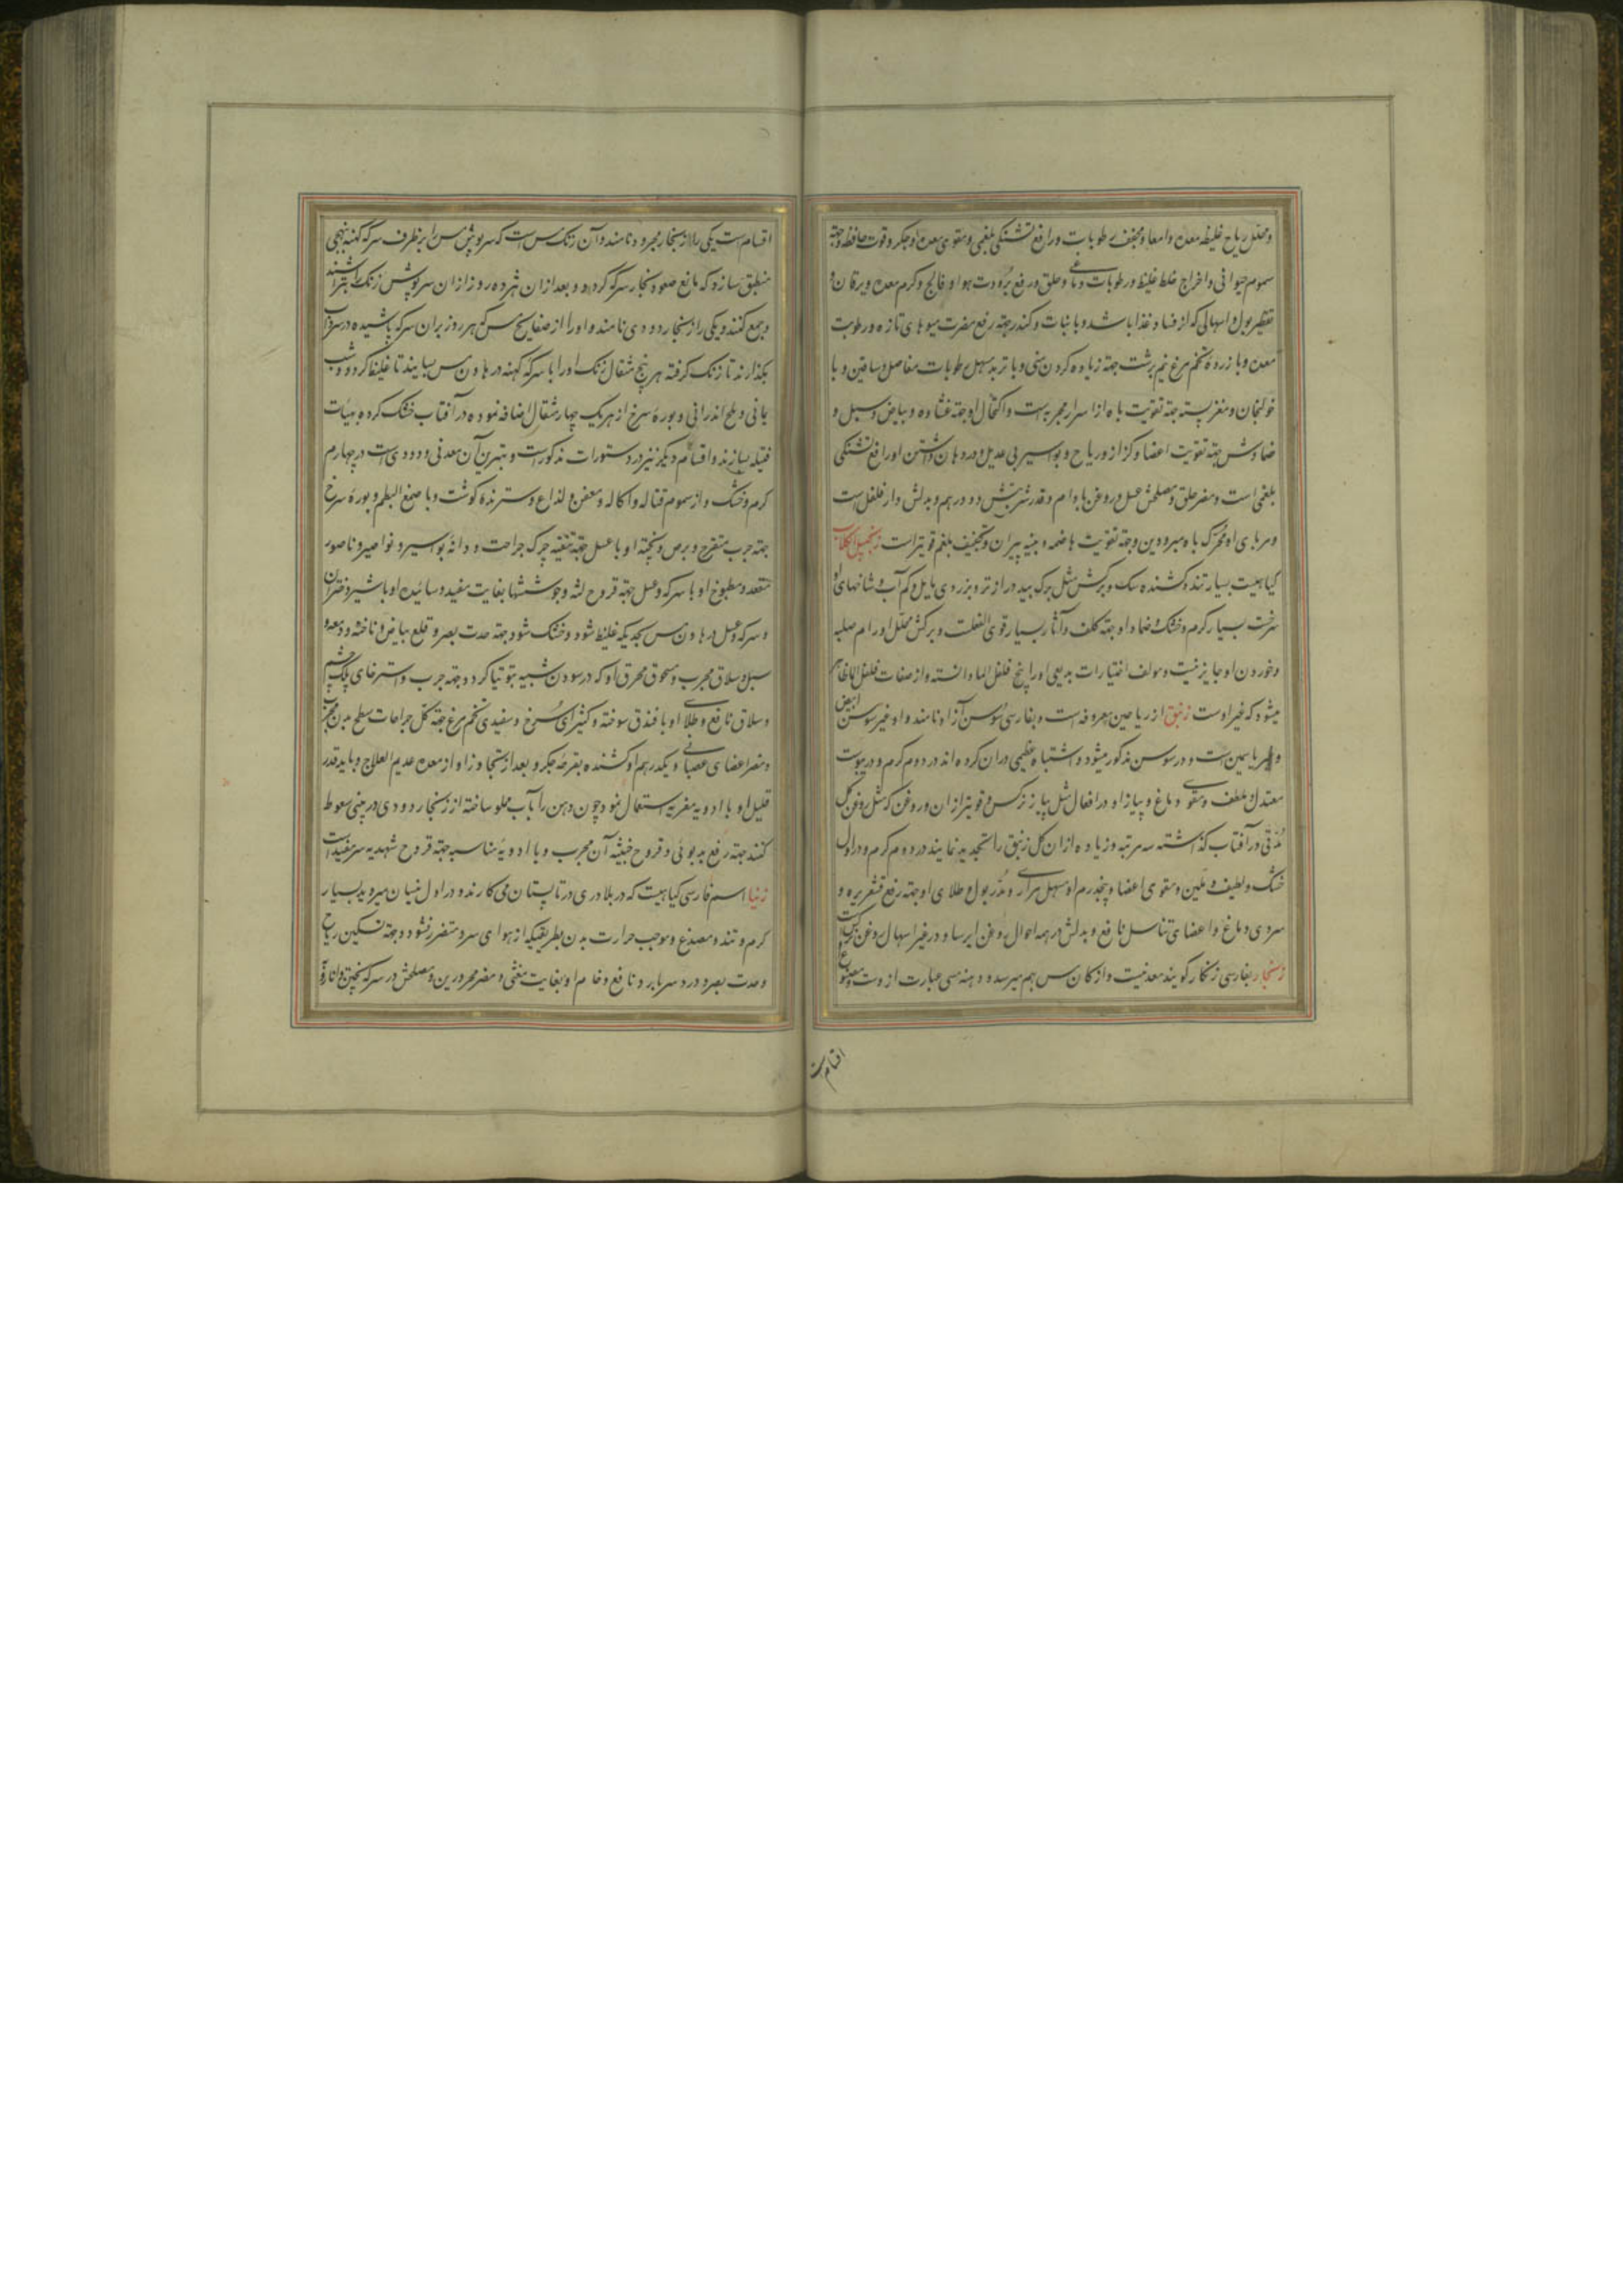 و محلل ریاح غلیظه معده و امعا و مجفف رطوبات و رافع تشنگی بلغمی و مقوی معده و جکر و قوت حافظه و جهة
سموم حیوانی و اخراج خلط غلیظ و رطوبات دماغی و حلق و رفع برودت هوا و فالج و کرم معده و یرقان و
تقطیر بول و اسهالی که از فساد غذا باشد و با نبات و کندر جهة رفع مضرت میوهای تازه و رطوبت
معده و با زرده تخم مرغ نیم برشت جهة زیاده کردن منی و با تربد مسهل رطوبات مفاصل و ساقین و با
خولنجان و مغز پسته جهة تقویت باه از اسرار مجربه است و اکتحال او جهة غشاوه و بیاض و سبل و
ضمادش جهة تقویت اعضا و کزاز و ریاح و بواسیر بی عدیل و در دهان داشتن او رافع تشنگی
بلغمی است و مضر حلق و مصلحش عسل و روغن بادام و قدر شربتش دو درهم و بدلش دار فلفل است
و مربای او محرک باه مبرودین و جهة تقویت هاضمه و بنیه پیران و تجفیف بلغم قویتر است زنجبیل الکلاب
کیاهیست بسیار تند و کشنده سک و برکش مثل برک بید و دراز تر و بزردی مایل و کم آب و شاخهای او
سرخست بسیار کرم و خشک و ضماد او جهة کلف و آثار بسیار قوی الفعلست و برکش محلل اورام صلبه
و خوردن او جایز نیست و مولف اختیارات بدیعی اورا پنج فلفل الما دانسته و از صفات فلفل الما ظاهر
میشود که غیر اوست زنبق از ریاحین معروفه است و بفارسی سوسن آزاد نامند و او غیر سوسن ابیض
و غیر یاسمین است و در سوسن مذکور میشود و اشتباه عظیمی دران کرده اند در دوم کرم و در یبوست
معتدل و ملطف و مقوی دماغ و پیاز او در افعال مثل پیاز نرکس و قویتر ازان و روغن که مثل روغن کل
مدتی در آفتاب کذاشته سه مرتبه و زیاده ازان کل زنبق را تجدید نمایند در دوم کرم و در اول
خشک و لطیف و ملین و مقوی اعضا و پنجدرم او مسهل مرار و مدر بول و طلای او جهة رفع قشعریره و
سردی دماغ و اعضای تناسل نافع و بدلش در همه احوال روغن ایرسا و در غیر اسهال روغن
زنجار بفارسی زنکار کویند معدنیست و از کان مس بهم میرسد و هندسی عبارت از وست و مصنوع
اقسام است
اقسام است یکی را زنجار مجرود نامند و آن زنک مس است که سرپوش مس را بر ظرف سرکه کهنه نهجی
منطبق سازند که مانع صعود بخار سرکه کردد و بعد ازان هر ده روز ازان سرپوش زنک را بتراشند
و جمع کنند و یکی را زنجار دودی نامند و اورا از صفایح مس که هر روز بران سرکه پاشیده در سرداب
بکذارند تا زنک کرفته هر پنج مثقال زنک اورا با سرکه کهنه در هاون مس بسایند تا غلیظ کردد و شب
یمانی و ملح اندرانی و بوره سرخ از هر یک چهار مثقال اضافه نموده در آفتاب خشک کرده بهیات
فتیله بسازند و اقسام دیکر نیز در دستورات مذکور است و بهترین آن معدنی و دودی است در چهارم
کرم و خشک و از سموم قتاله و اکاله و معفن و لذاع و سترنده کوشت و با صمغ البطم و بوره سرخ
جهة جرب متقرح و برص و پخته او با عسل جهة تنقیه چرک جراحت و دانه بواسیر و نواصیر و ناصور
مقعد و مطبوخ او با سرکه و عسل جهة قروح لثه و جوششها بغایت مفید و سائیده او با شیر دختران
و سرکه و عسل در هاون مس بحدیکه غلیظ شود و خشک شود جهة حدت بصر و قلع بیاض و ناخنه و دمعه و
سبل و سلاق مجرب و مسحوق محرق او که در سودن شبیه بتوتیا کردد جهة جرب و استرخای پلک چشم
و سلاق نافع و طلای او با فندق سوخته و کتیرای سرخ و سفیدی تخم مرغ جهة کل جراحات سطح بدن مجرب
و مضر اعضای عصبانی و یکدرهم او کشنده بقرحه جکر و بعد از تجاوز او از معده عدیم العلاج و باید قدر
قلیل او با ادویه مغریه استعمال نمود چون دهن را بآب مملو ساخته از زنجار دودی در بینی سعوط
کنند جهة رفع بدبوئی و قروح خبیثه آن مجرب و با ادویه مناسبه جهة قروح شهدیه سر مفید است
زنیا اسم فارسی کیاهیست که در بلاد ری در تابستان می کارند و در اول نیسان میروید بسیار
کرم و تند و مصدع و موجب حرارت بدن بطریقیکه از هوای سرد متضرر نشود و جهة تسکین ریاح
و حدت بصر و درد سر بارد نافع و خام او بغایت مغثی و مضر محرورین و مصلحش در سرکه پختن و انار